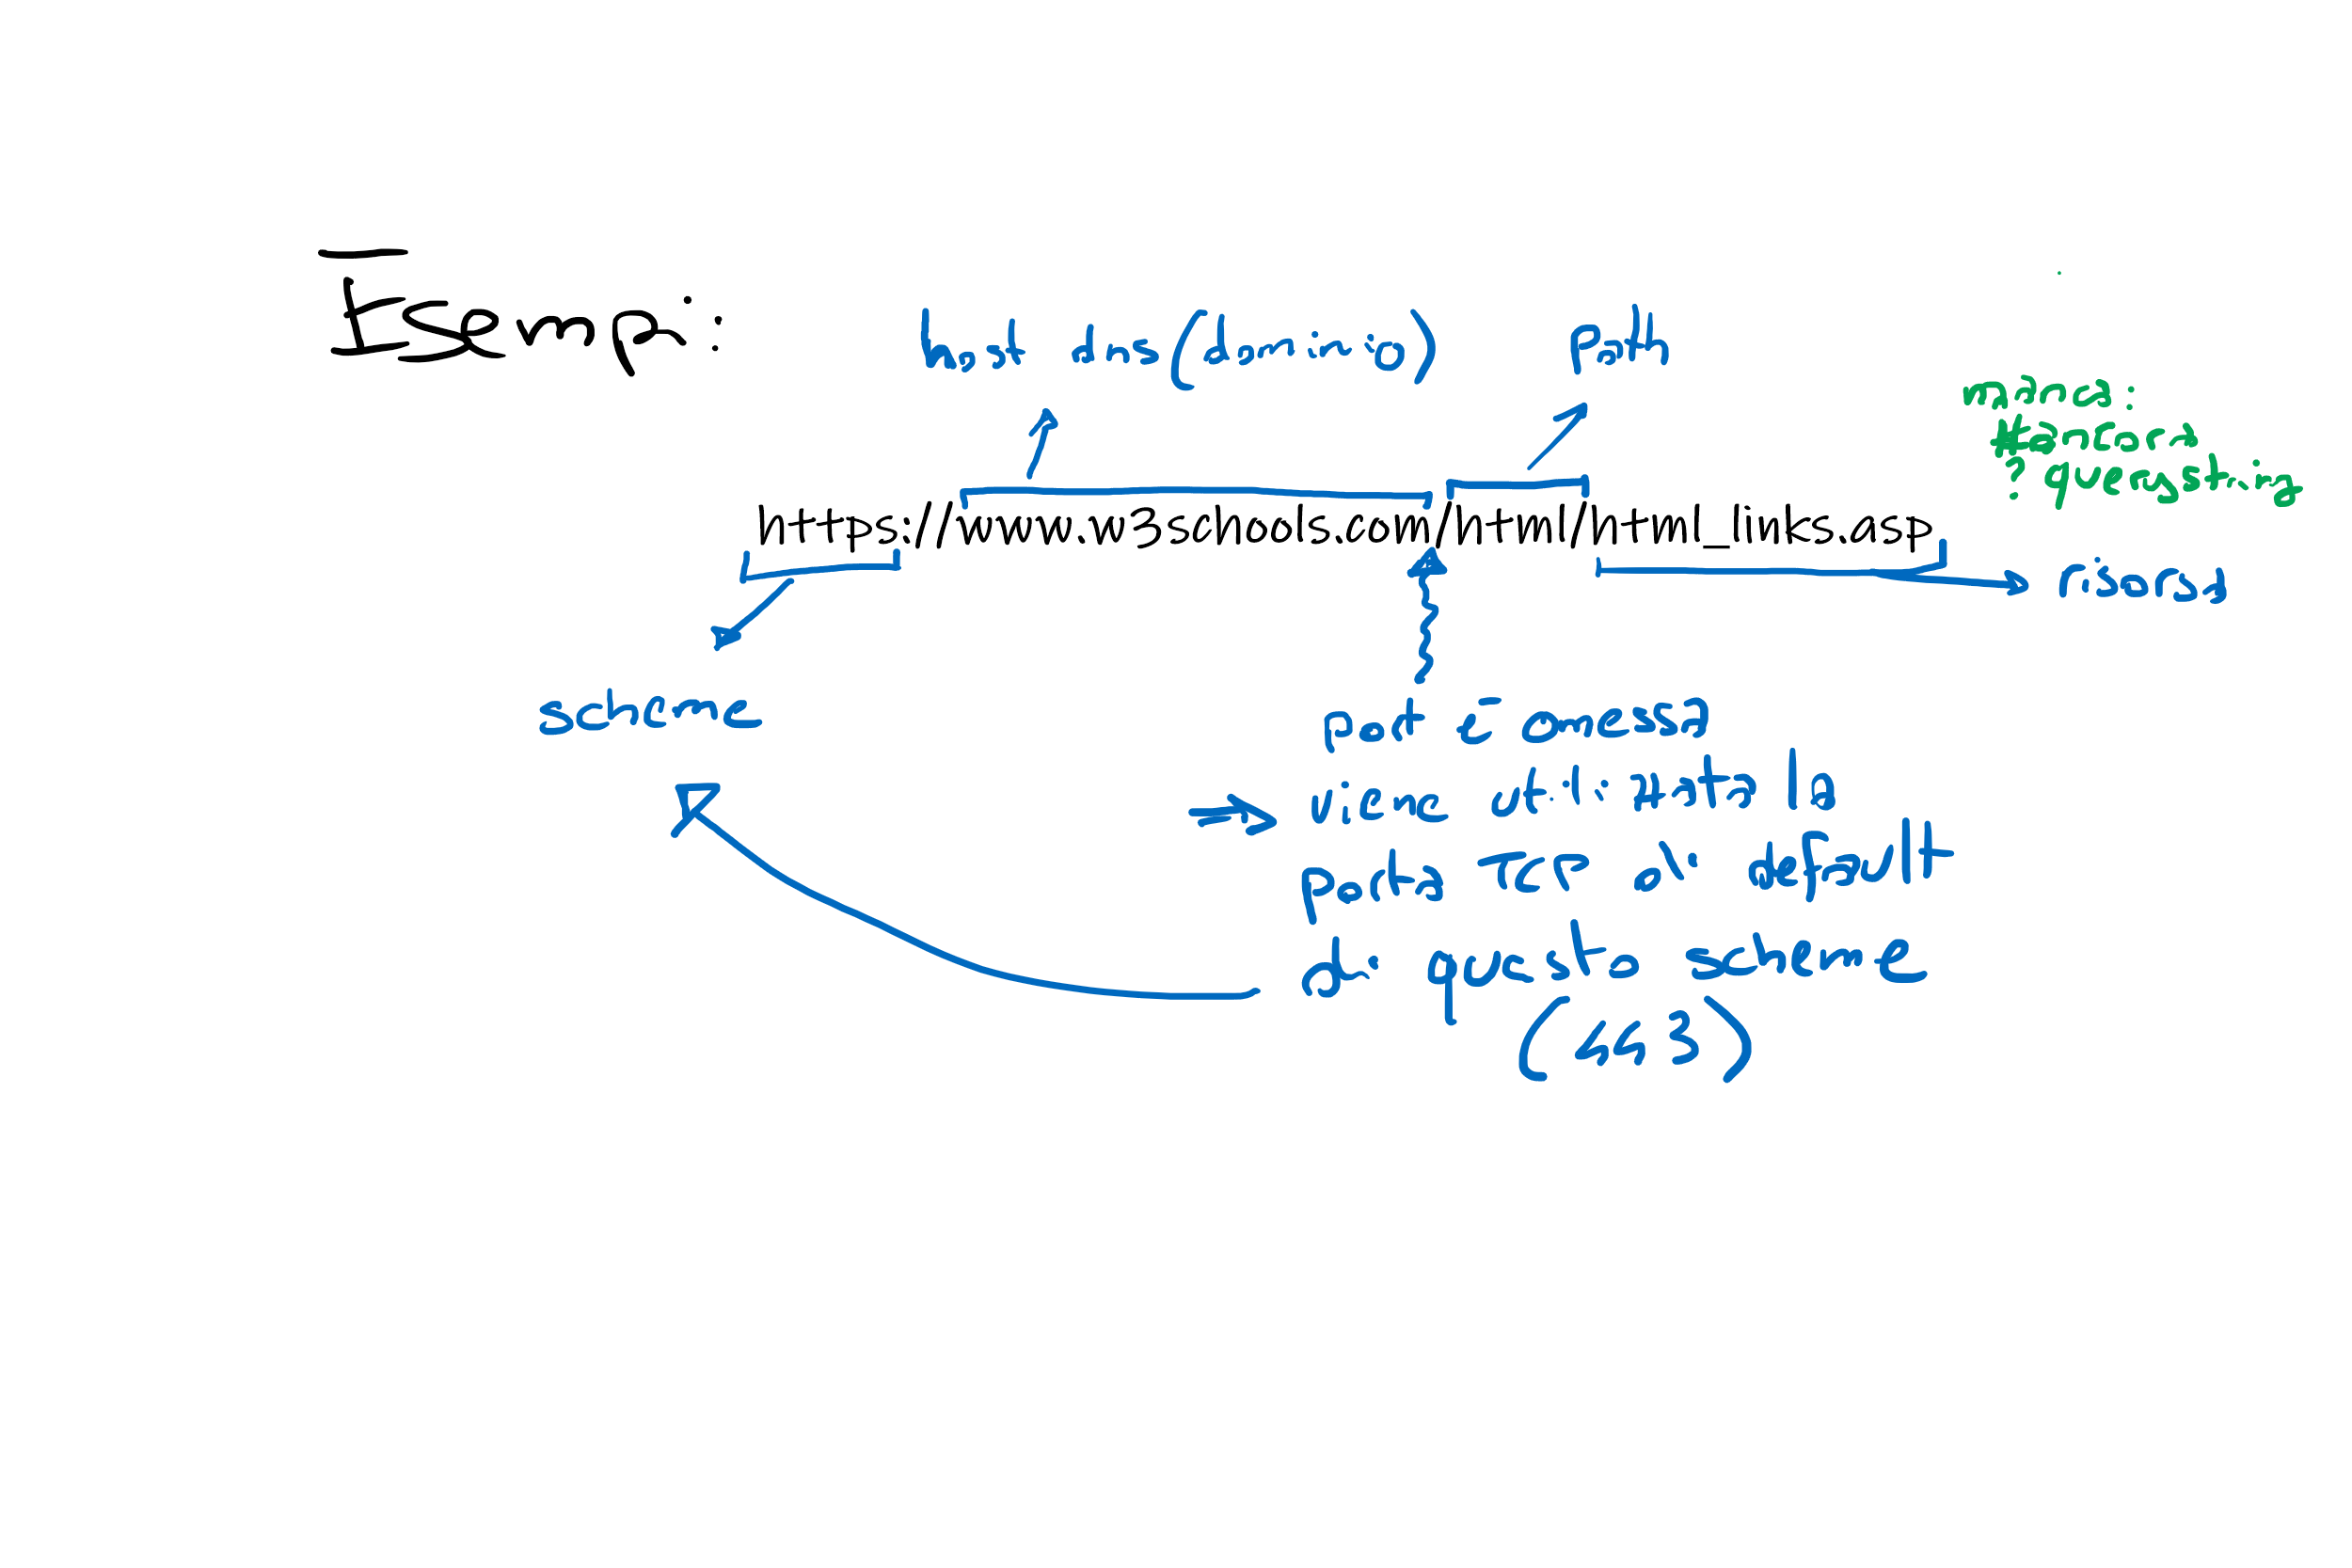 Esempi:
host dns (dominio)
path
manca:
#ancora
? querystring
https://www.w3schools.com/html/html_links.asp
risorsa
scheme
port È omessa
viene utilizzata la
porta TCP di default
di questo scheme
(443)